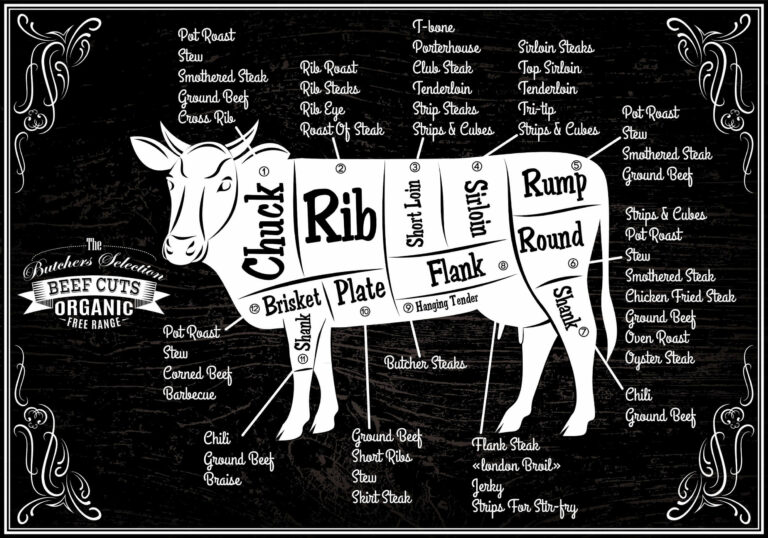 Pot Roast
Stew
Smothered Steak
Ground Beef
Cross Rib
Rib Roast
Rib Steaks
Rib Eye
Roast Of Steak
T-bone
Porterhouse
Club Steak
Tenderloin
Strip Steaks
Strips & Cubes
Sirloin Steaks
Top Sirloin
Tenderloin
Tri-tip
Strips & Cubes
Pot Roast
Stew
Smothered Steak
Ground Beef
① Chuck
② Rib
③ Short Loin
④ Sirloin
⑤ Rump
Round ⑥
Shank ⑦
Flank ⑧
⑨ Hanging Tender
Plate ⑩
Shank ⑪
⑫ Brisket
The
Butchers Selection
BEEF CUTS
ORGANIC
FREE RANGE
Strips & Cubes
Pot Roast
Stew
Smothered Steak
Chicken Fried Steak
Ground Beef
Oven Roast
Oyster Steak
Chili
Ground Beef
Pot Roast
Stew
Corned Beef
Barbecue
Butcher Steaks
Chili
Ground Beef
Braise
Ground Beef
Short Ribs
Stew
Skirt Steak
Flank Steak
«london Broil»
Jerky
Strips For Stir-fry